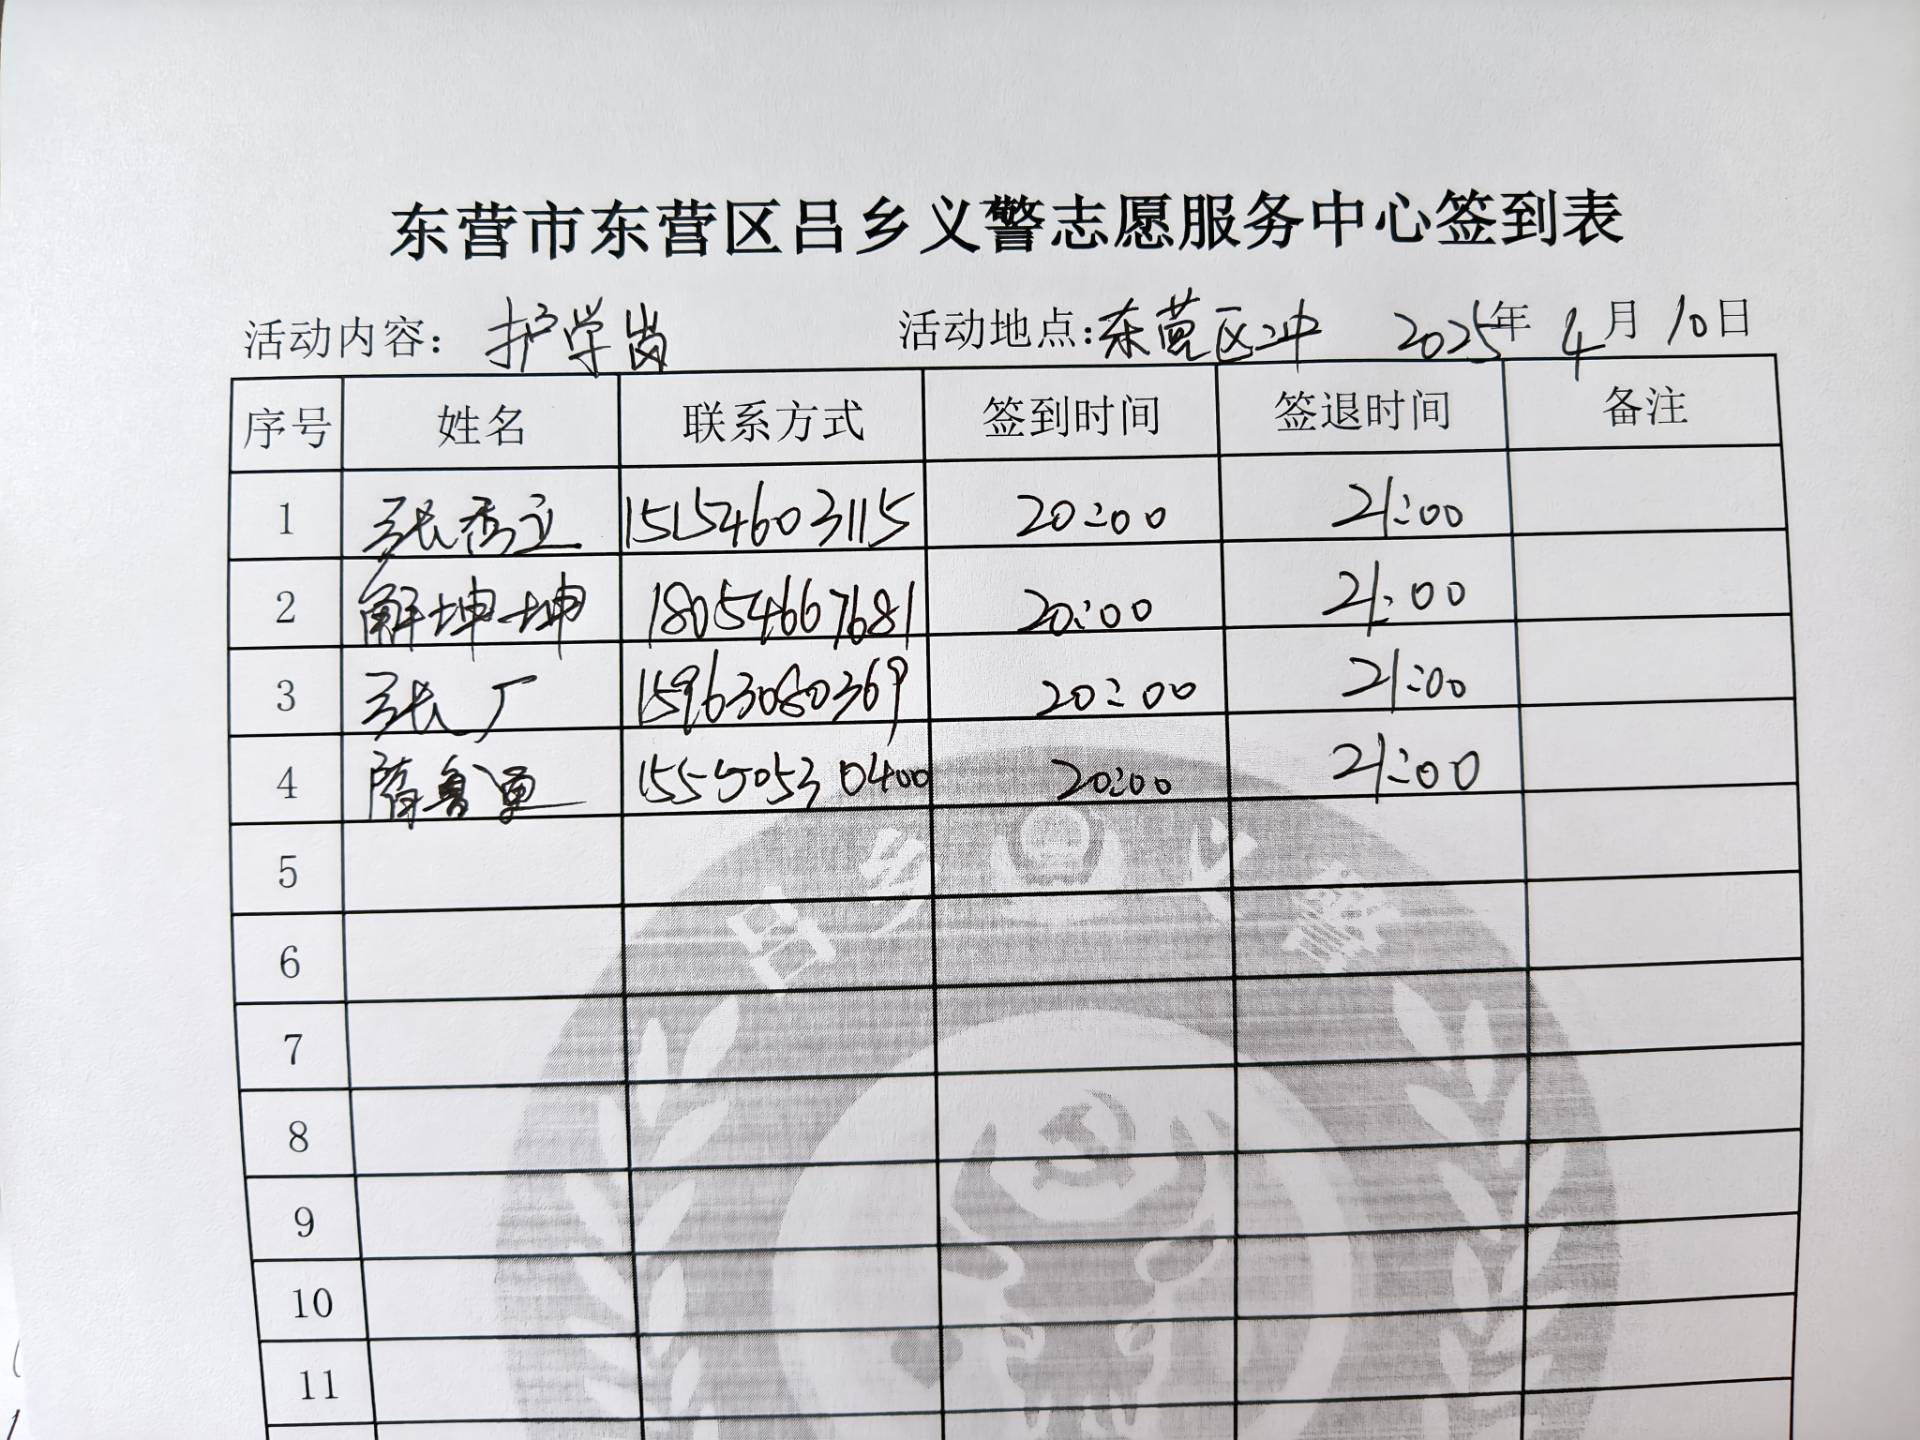 东营市东营区吕乡义警志愿服务中心签到表
活动内容：护学岗 活动地点:东营区二中 2025年 4月 10日
序号 姓名 联系方式 签到时间 签退时间 备注
1 张秀立 15154603115 20:00 21:00
2 解坤坤 18054667681 20:00 21:00
3 张广 15963080369 20:00 21:00
4 隋鲁通 15550530400 20:00 21:00
5
6
7
8
9
10
11
吕乡义警